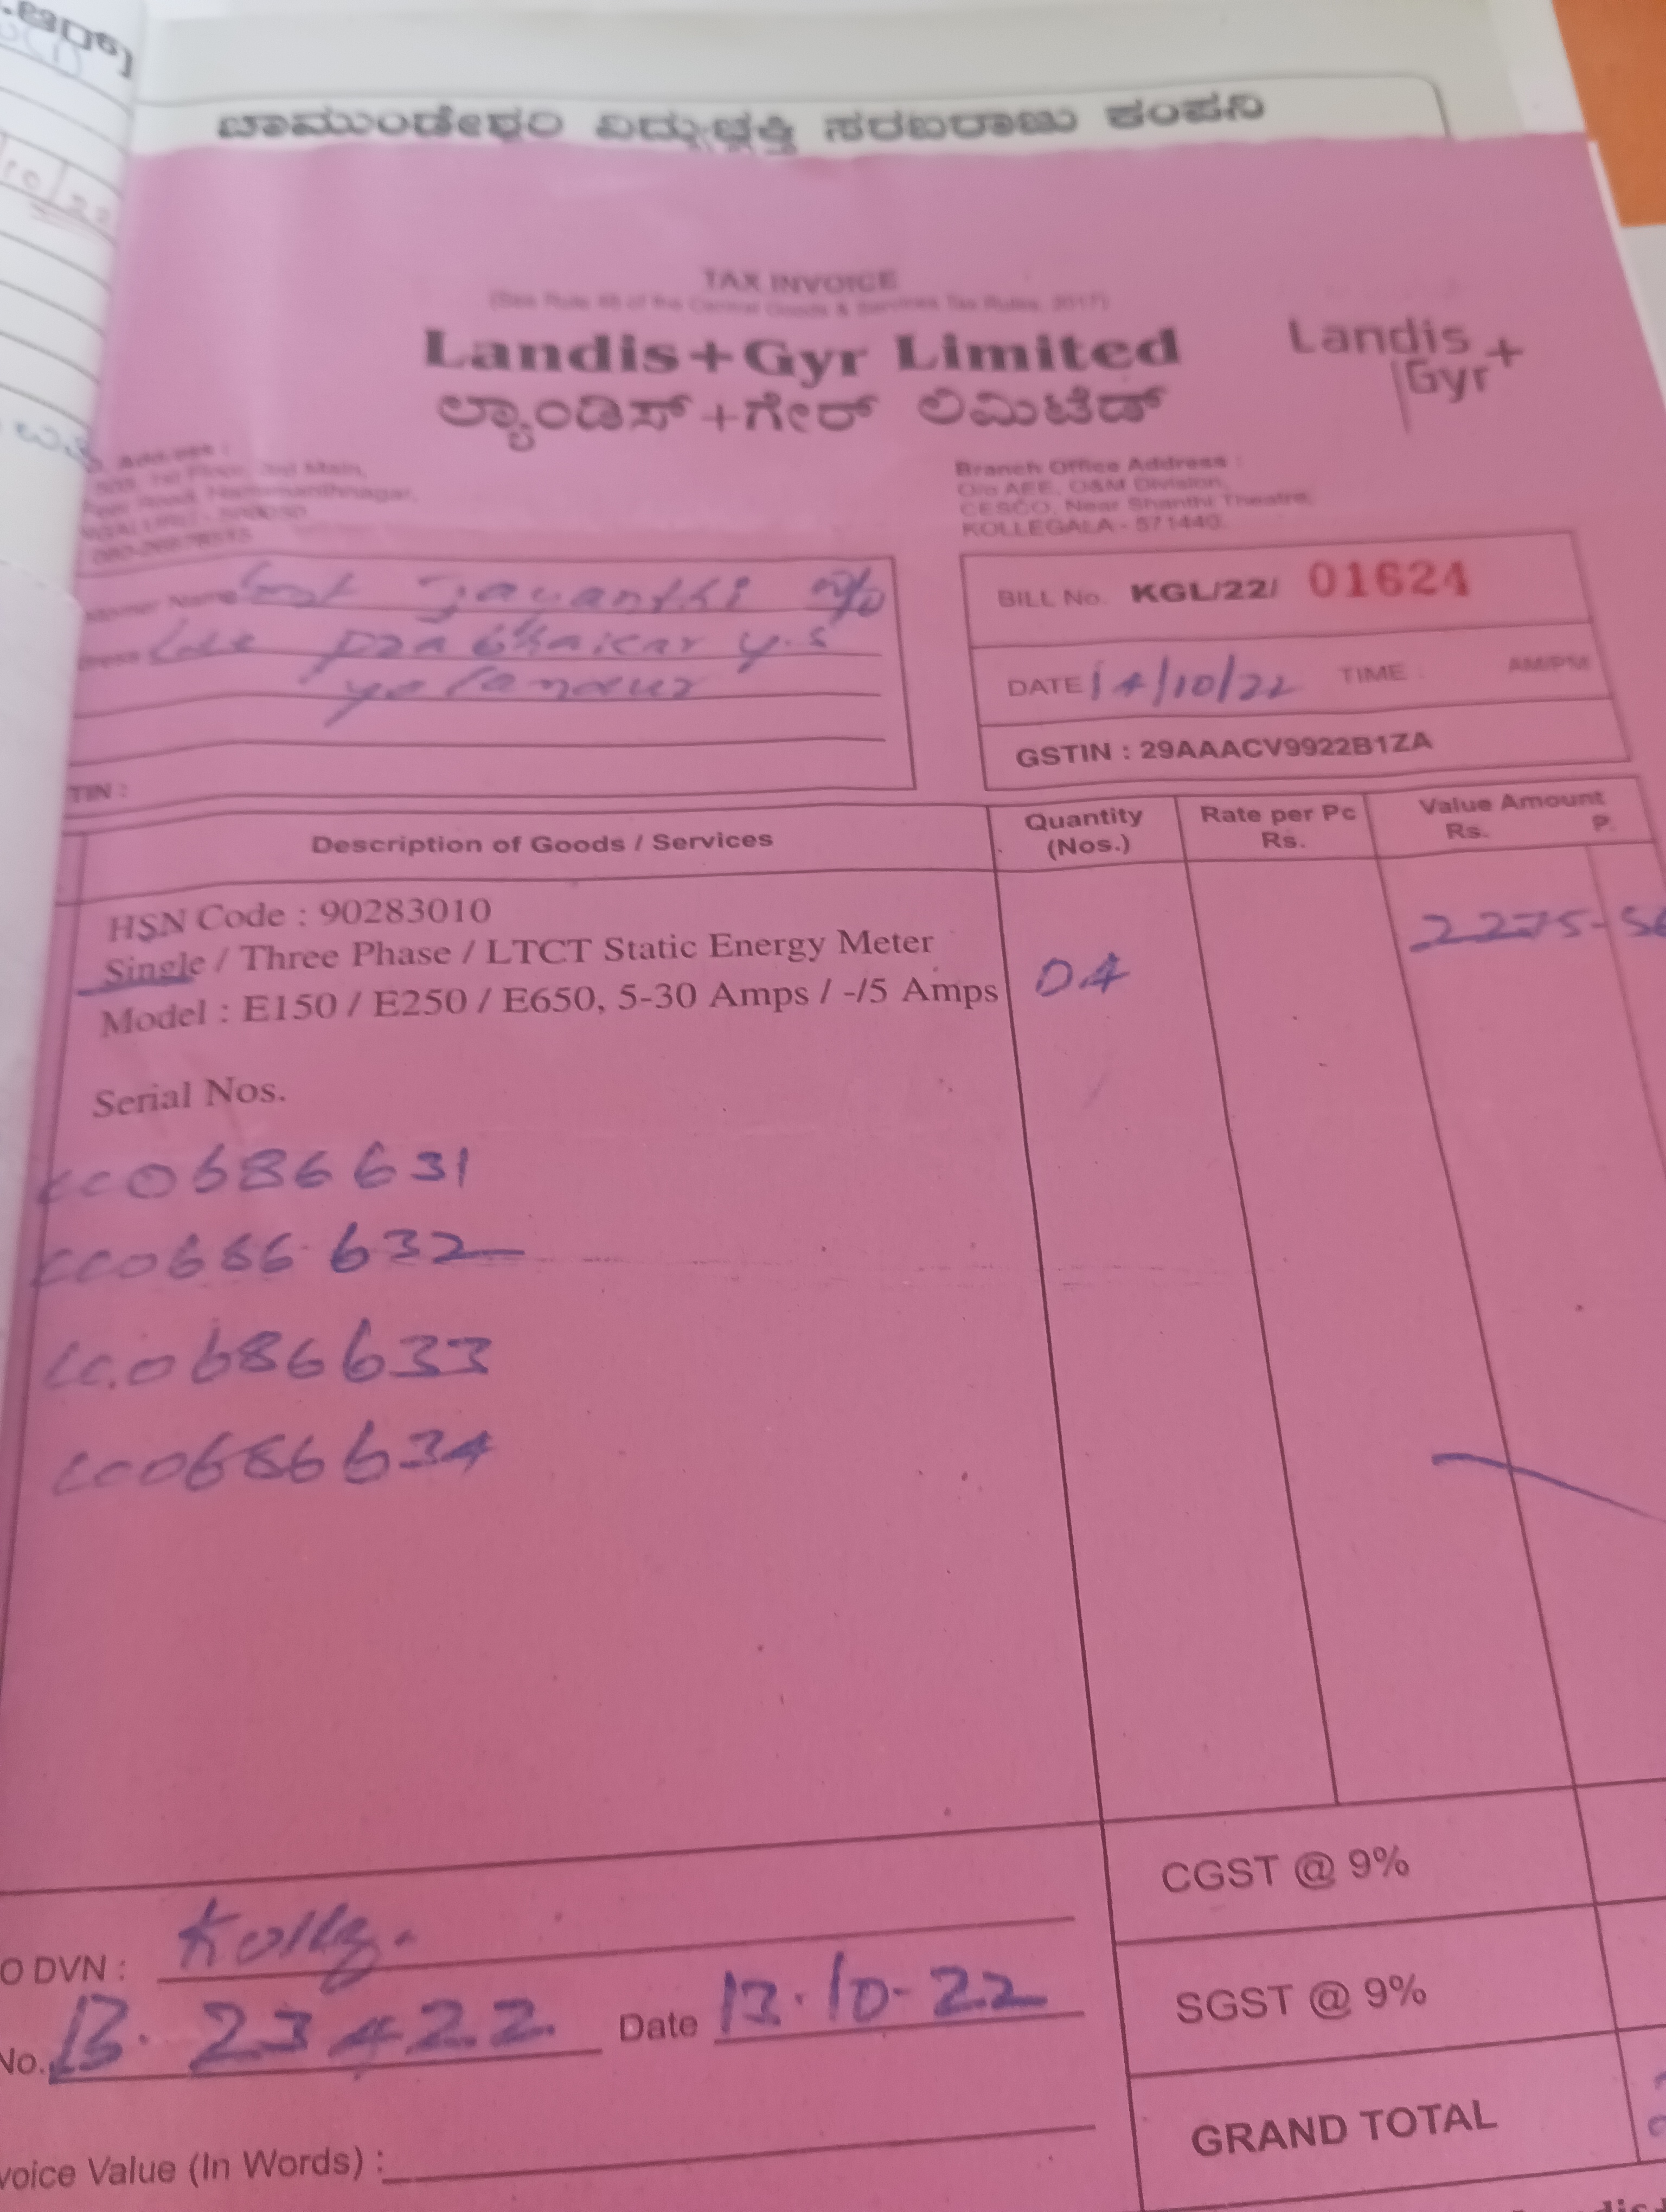 ಚಾಮುಂಡೇಶ್ವರಿ ವಿದ್ಯುಚ್ಛಕ್ತಿ ಸರಬರಾಜು ಕಂಪನಿ
10/22
TAX INVOICE
(See Rule 46 of the Central Goods & Services Tax Rules, 2017)
Landis+Gyr Limited
ಲ್ಯಾಂಡಿಸ್+ಗೇರ್ ಲಿಮಿಟೆಡ್
Landis + Gyr
Address :
1st Floor, 2nd Main,
Road, Hanumanthnagar,
Branch Office Address :
O/o AEE, O&M Division,
CESCO, Near Shanthi Theatre,
KOLLEGALA - 571440.
Name Smt Jayanthi w/o
Late Prabhakar Y.S
yelandur
TIN :
BILL No. KGL/22/ 01624
DATE 14/10/22 TIME : AM/PM
GSTIN : 29AAACV9922B1ZA
Description of Goods / Services
Quantity (Nos.)
Rate per Pc Rs.
Value Amount Rs. P.
HSN Code : 90283010
Single / Three Phase / LTCT Static Energy Meter
Model : E150 / E250 / E650, 5-30 Amps / -/5 Amps
04
2275-56
Serial Nos.
CC0686631
CC0686632
CC0686633
CC0686634
CGST @ 9%
SGST @ 9%
GRAND TOTAL
O DVN : Kollg.
No. 13. 23422 Date 13.10.22
voice Value (In Words) :